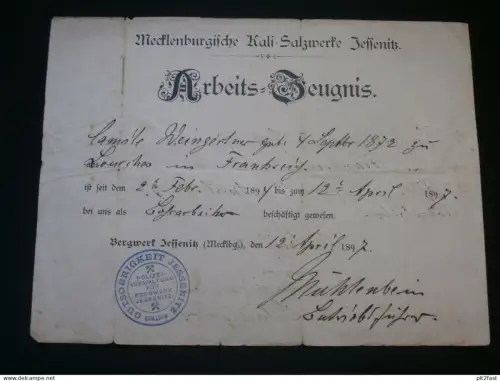 Mecklenburgische Kali-Salzwerke Jessenitz.
Arbeits-Zeugnis.
Camile Weingärtner geb. 4 Septbr 1872 zu
in Frankreich
ist seit dem 2t Febr. 1897 bis zum 12t April 1897.
bei uns als beschäftigt gewesen.
Bergwerk Jessenitz (Mecklbg.), den 12 April 1897.
GUTSOBRIGKEIT JESSENITZ
POLIZEI-
VERWALTUNG
BERGWERK
JESSENITZ
Mühlenbein
Betriebsführer.